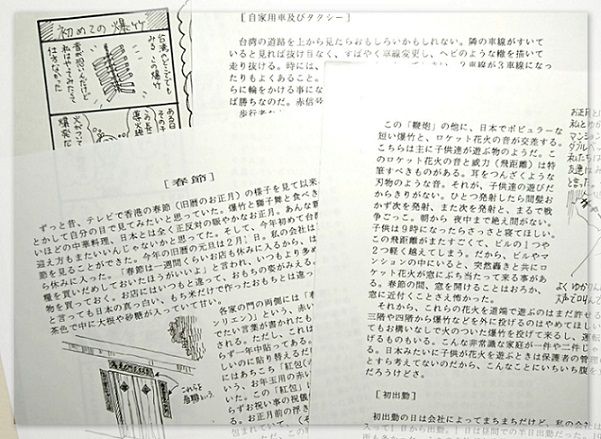 初めての爆竹
台湾のどこででも
みる この爆竹
音が恐いんだけど
私はやってみたくて
仕方なかった
ある日
[自家用車及びタクシー]
台湾の道路を上から見たらおもしろいかもしれない。隣の車線がすいて
いると見れば抜け目なく、すばやく車線変更し、ヘビのような線を描いて
走り抜ける。時には、
２車線が３車線になっ
たりもよくあること。
らに輪をかける事にな
ば勝ちなのだ。赤信号
歩行者
[春節]
ずっと昔、テレビで香港の春節（旧暦のお正月）の様子を見て以来
とかして自分の目で見てみたいと思っていた。爆竹と獅子舞と食べき
いほどの中華料理、日本とは全く正反対の賑やかなお正月。あんな新
迎え方もまたいいんじゃないかと思ってた。そして、今年初めて台湾
節を見ることができた。今年の旧暦の元旦は２月
日。私の会社は
ら休みに入った。「春節は一週間くらいお店も休みに入るから、は
糧を買いだめしておいたほうがいいよ」と言われ、いつもより多め
物を買っておく。お店にはいつもと違って、おもちの姿がみえる。
と言っても日本の真っ白い、もち米だけで作ったおもちとは違っ
茶色で中に大根や砂糖が入っていて甘い。
各家の門の両側には「春
ンリェン）」という、赤い
でたい言葉が書かれたも
される。ただし、これは
らず一年中貼ってある。
しいのに貼り替えるだけ
にはあちこち「紅包（ホ
いう、お年玉用の赤い
いた。この「紅包」は
らずお祝い事の祝儀
お正月前の浮き
包まれていて、
これらを
春聯という。
この「鞭炮」の他に、日本でポピュラーな
短い爆竹と、ロケット花火の音が交差する。
こちらは主に子供達が遊ぶ物のようだ。こ
のロケット花火の音と威力（飛距離）は特
筆すべきものがある。耳をつんざくような
刃物のような音。それが、子供達の遊びだ
からきりがない。ひとつ発射したら間髪お
かず次を発射、また次を発射と、まるで戦
争ごっこ。朝から 夜中まで絶え間がない。
子供は９時になったらさっさと寝てほしい。
この飛距離がまたすごくて、ビルの１つや
２つ軽く越えてしまう。だから、ビルやマ
ンションの中にいると、突然轟きと共にロ
ケット花火が窓にぶち当たって来る事があ
る。春節の間、窓を開けることはおろか、
窓に近付くことさえ怖かった。
それから、これらの花火を道端で遊ぶのはまだ許せる
三階や四階から爆竹などを外に投げるのはやめてほしい
てもお構いなしで火のついた爆竹を投げて来るし、運転
げるものもいる。こんな非常識な家庭が一件や二件じゃ
る。日本みたいに子供が花火を遊ぶときは保護者の管理
とすら考えてないのだから、こんなことにいちいち腹
だろうけどさ。
[初出勤]
初出勤の日は会社によってまちまちだけど、私の会社は
お正月と
私とゆか
マンション
ダブルベ
私たちは
友達は
と言。
よく ゆかりん
大声で叫んで